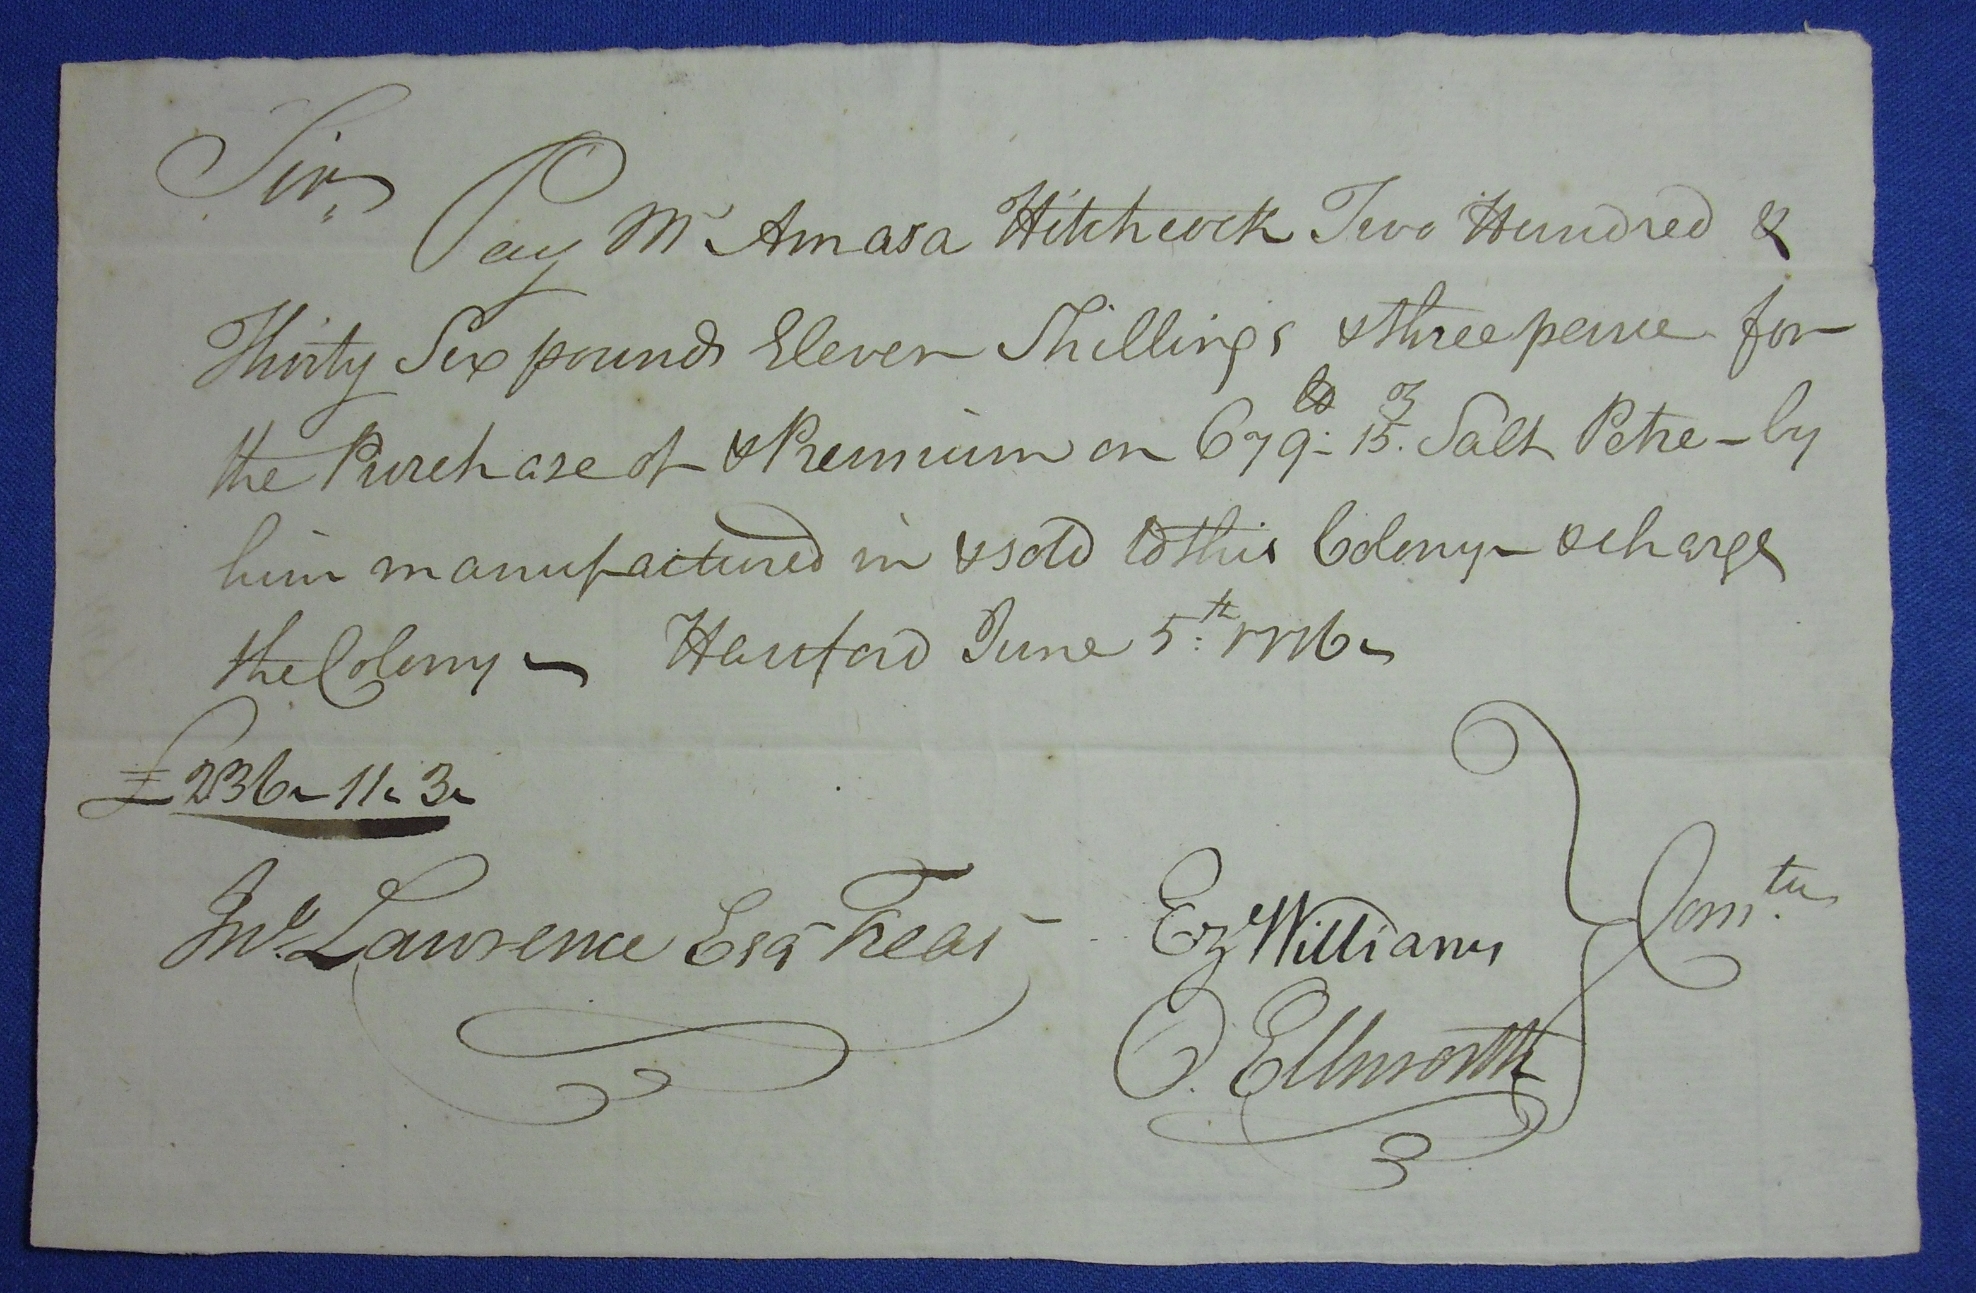 Sir,
Pay Mr Amasa Hitchcock Two Hundred &
Thirty Six pounds Eleven Shillings & three pence for
the Purchase of & Premium on 679 lb 15 oz Salt Petre - by
him manufactured in & sold to this Colony & charge
the Colony - Hartford June 5th 1776
£236 - 11 - 3
Jno Lawrence Esqr Treasr
Ez Williams
O. Ellsworth
Comtee